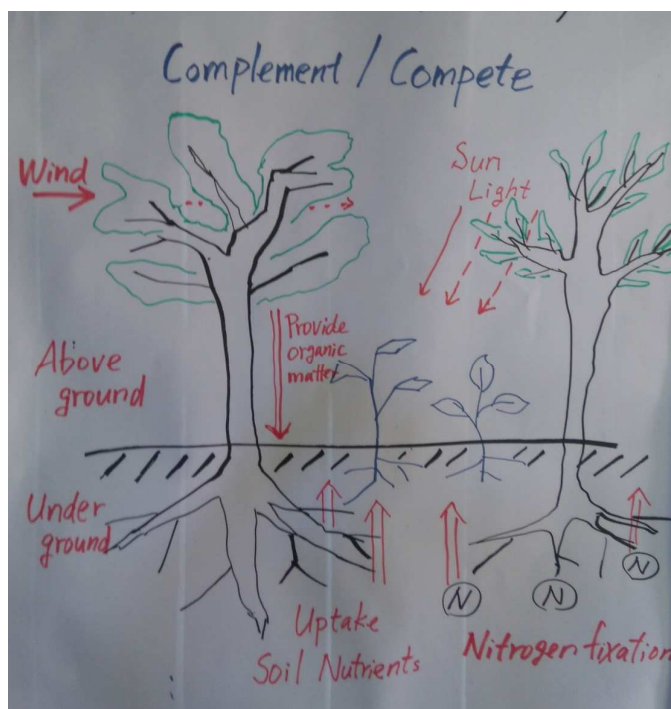 Complement / Compete
Wind
Sun
Light
Provide
organic
matter
Above
ground
Under
ground
Uptake
Soil Nutrients
N
N
N
Nitrogen fixation